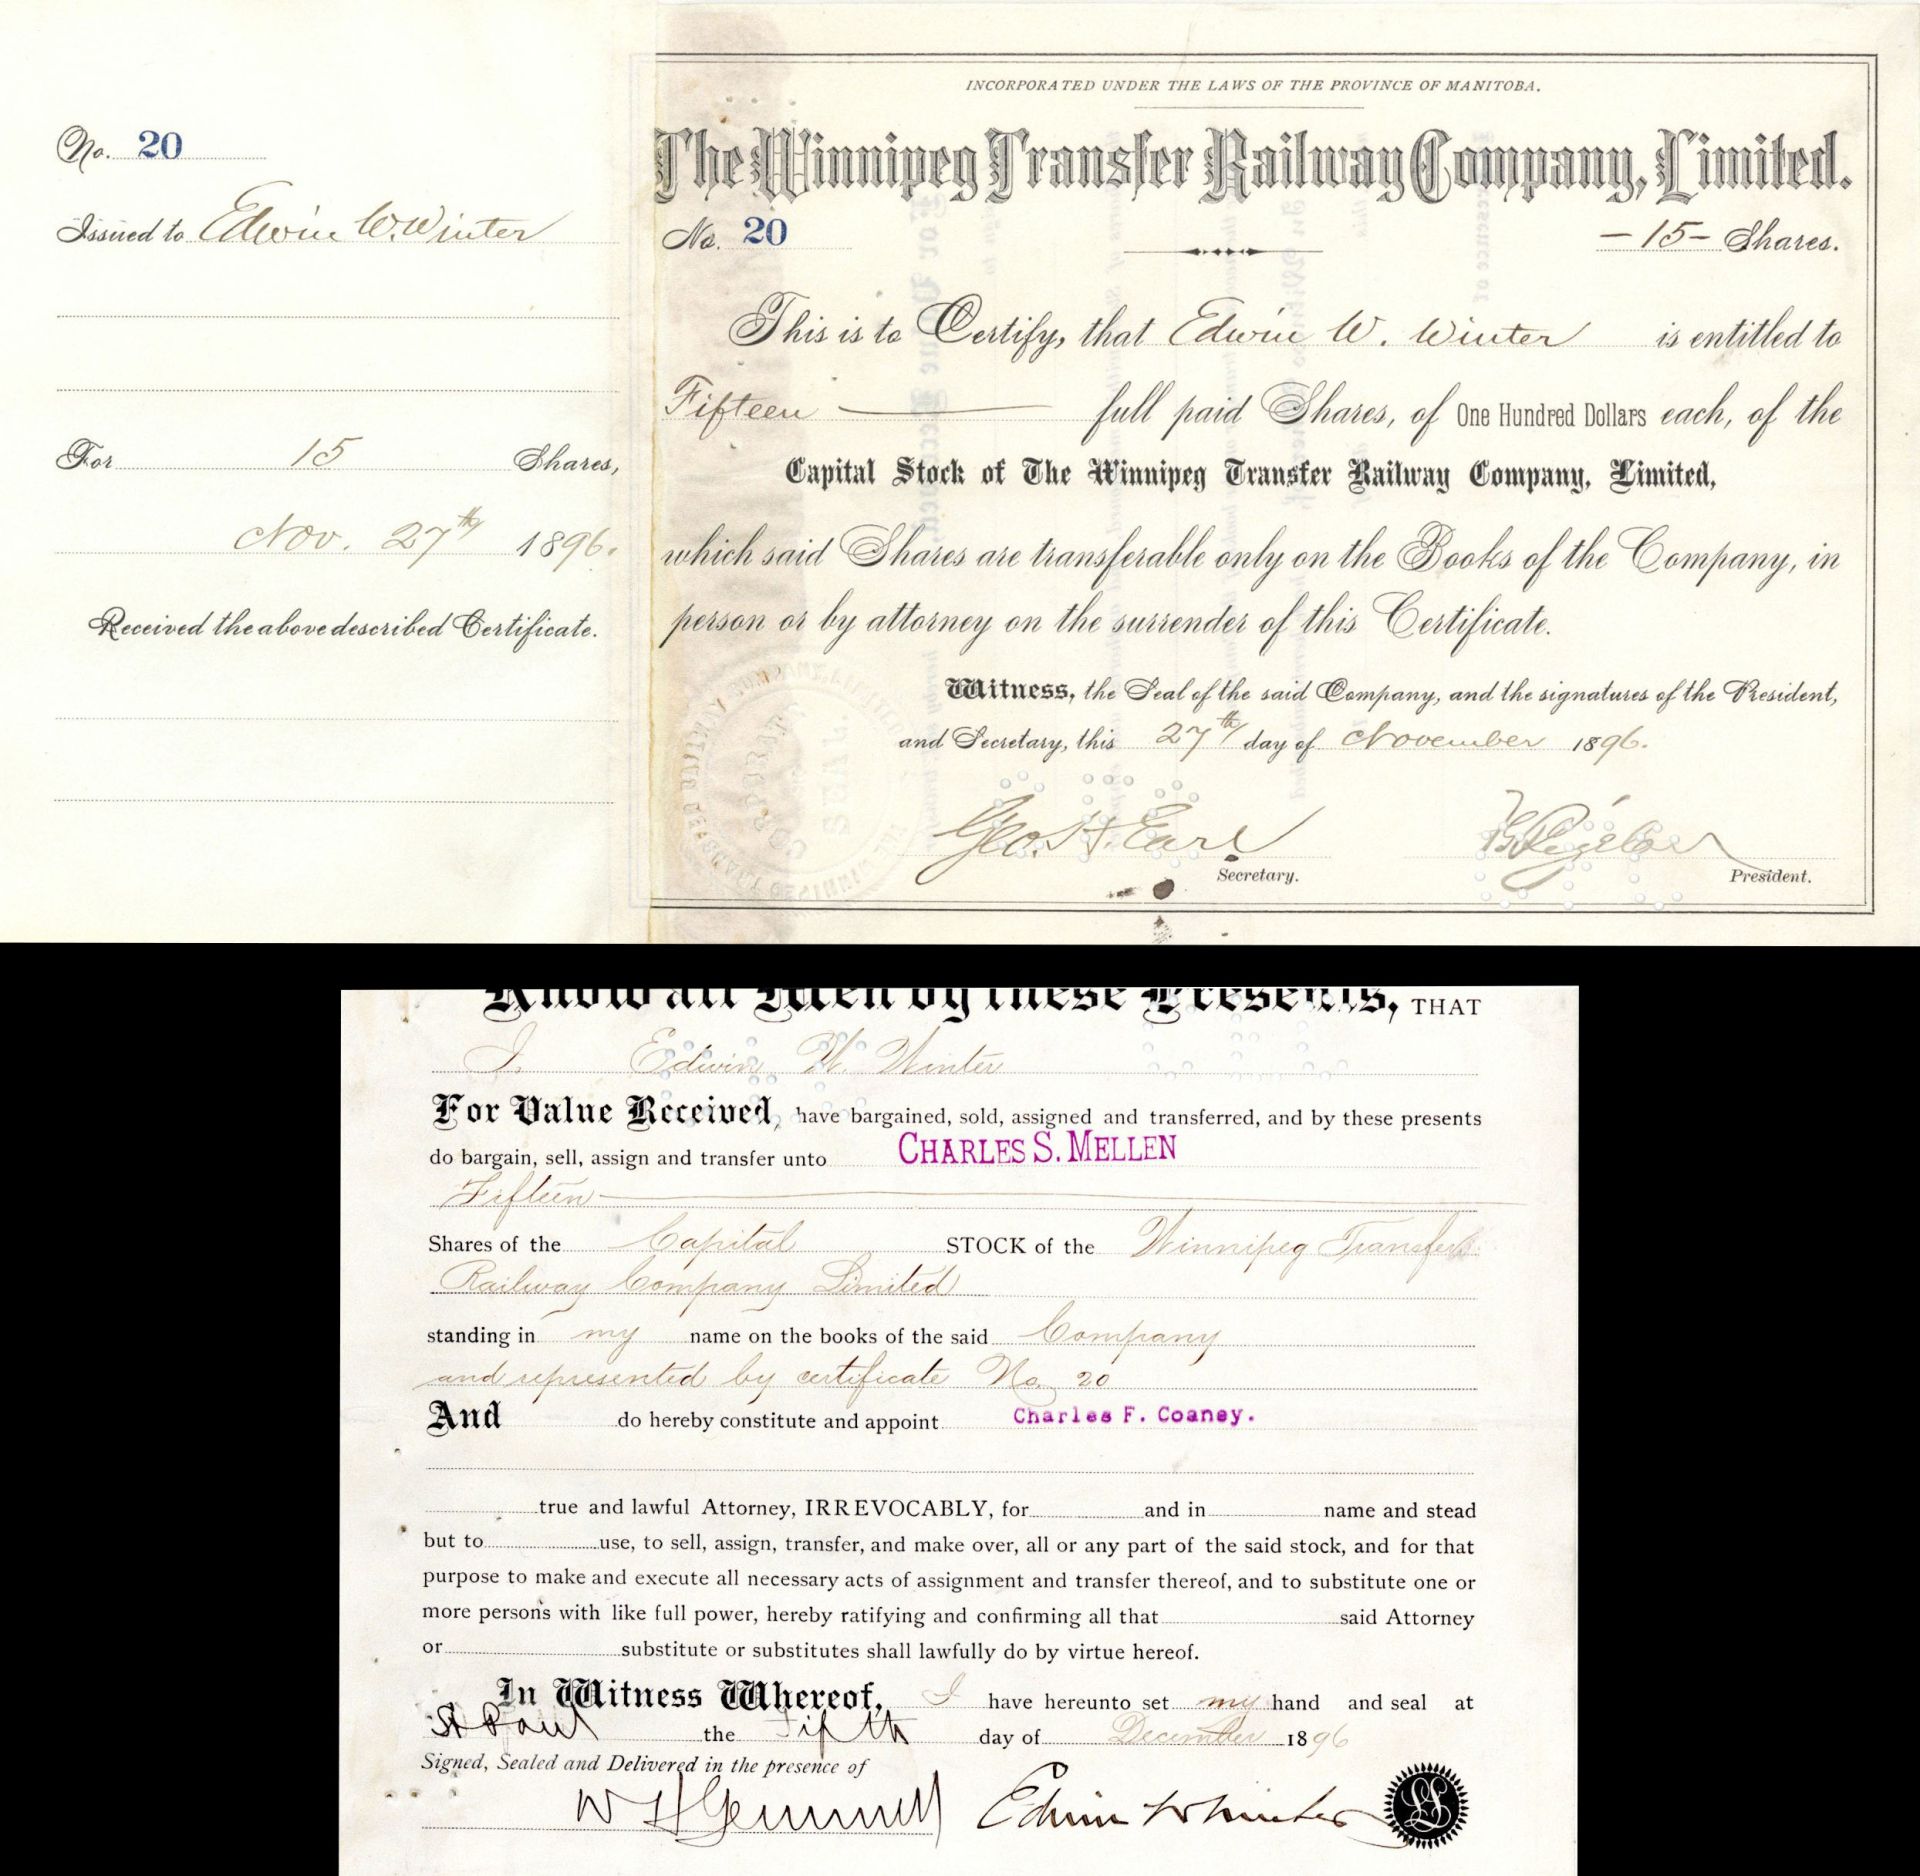 No. 20
Issued to Edwin W. Winter
For 15 Shares,
Nov. 27th 1896.
Received the above described Certificate.
INCORPORATED UNDER THE LAWS OF THE PROVINCE OF MANITOBA.
The Winnipeg Transfer Railway Company, Limited.
No. 20 -15- Shares.
This is to Certify, that Edwin W. Winter is entitled to
Fifteen full paid Shares, of One Hundred Dollars each, of the
Capital Stock of The Winnipeg Transfer Railway Company, Limited,
which said Shares are transferable only on the Books of the Company, in
person or by attorney on the surrender of this Certificate.
Witness, the Seal of the said Company, and the signatures of the President,
and Secretary, this 27th day of November 1896.
Geo. H. Earl
Secretary. President.
Know all Men by these Presents, THAT
I Edwin W. Winter
For Value Received, have bargained, sold, assigned and transferred, and by these presents
do bargain, sell, assign and transfer unto CHARLES S. MELLEN
Fifteen
Shares of the Capital STOCK of the Winnipeg Transfer
Railway Company Limited
standing in my name on the books of the said Company
and represented by certificate No. 20
And do hereby constitute and appoint Charles F. Coaney.
true and lawful Attorney, IRREVOCABLY, for and in name and stead
but to use, to sell, assign, transfer, and make over, all or any part of the said stock, and for that
purpose to make and execute all necessary acts of assignment and transfer thereof, and to substitute one or
more persons with like full power, hereby ratifying and confirming all that said Attorney
or substitute or substitutes shall lawfully do by virtue hereof.
In Witness Whereof, I have hereunto set my hand and seal at
St Paul the Fifth day of December 1896
Signed, Sealed and Delivered in the presence of
W H Gemmell Edwin W Winter LS